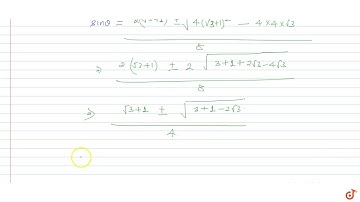 sinθ = 2(√3+1) ± √4(√3+1)² − 4×4×√3
8
⇒ 2(√3+1) ± 2√3+1+2√3−4√3
8
⇒ √3+1 ± √3+1−2√3
4